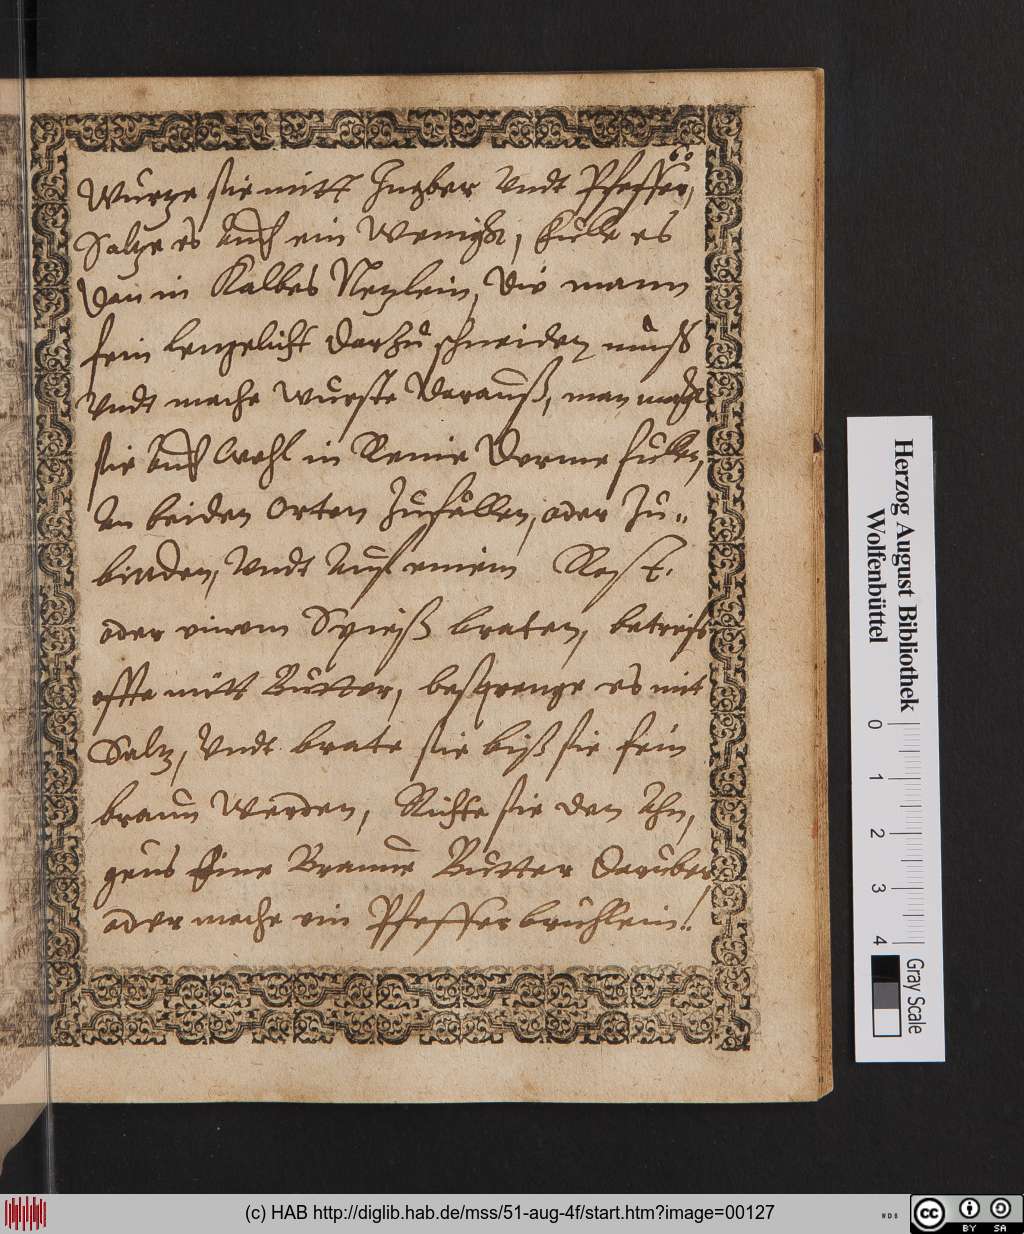 60
Würtze sie mitt Ingber Vndt Pfeffer,
Saltze es auch ein Wenigk, fülle es
Dan in Kalbes Netzlein, Die mann
fein lengelicht Darzu schneiden muß
Vndt mache würste Darauß, man magk
sie auch Wohl in Reine Derme füllen,
An beiden orten Zufüllen, oder Zu„
binden, Vndt auf einem Rost.
oder einem Spieß braten, betreiff
offte mitt Butter, besprenge es mit
Saltz, Vndt brate sie biß sie fein
braun Werden, Richte sie den Ahn,
geus Eine Braune Butter Darüber
oder mache ein Pfefferbrühlein.
Herzog August Bibliothek
Wolfenbüttel
0
1
2
3
4
Gray Scale
(c) HAB http://diglib.hab.de/mss/51-aug-4f/start.htm?image=00127
WDB
cc
BY SA